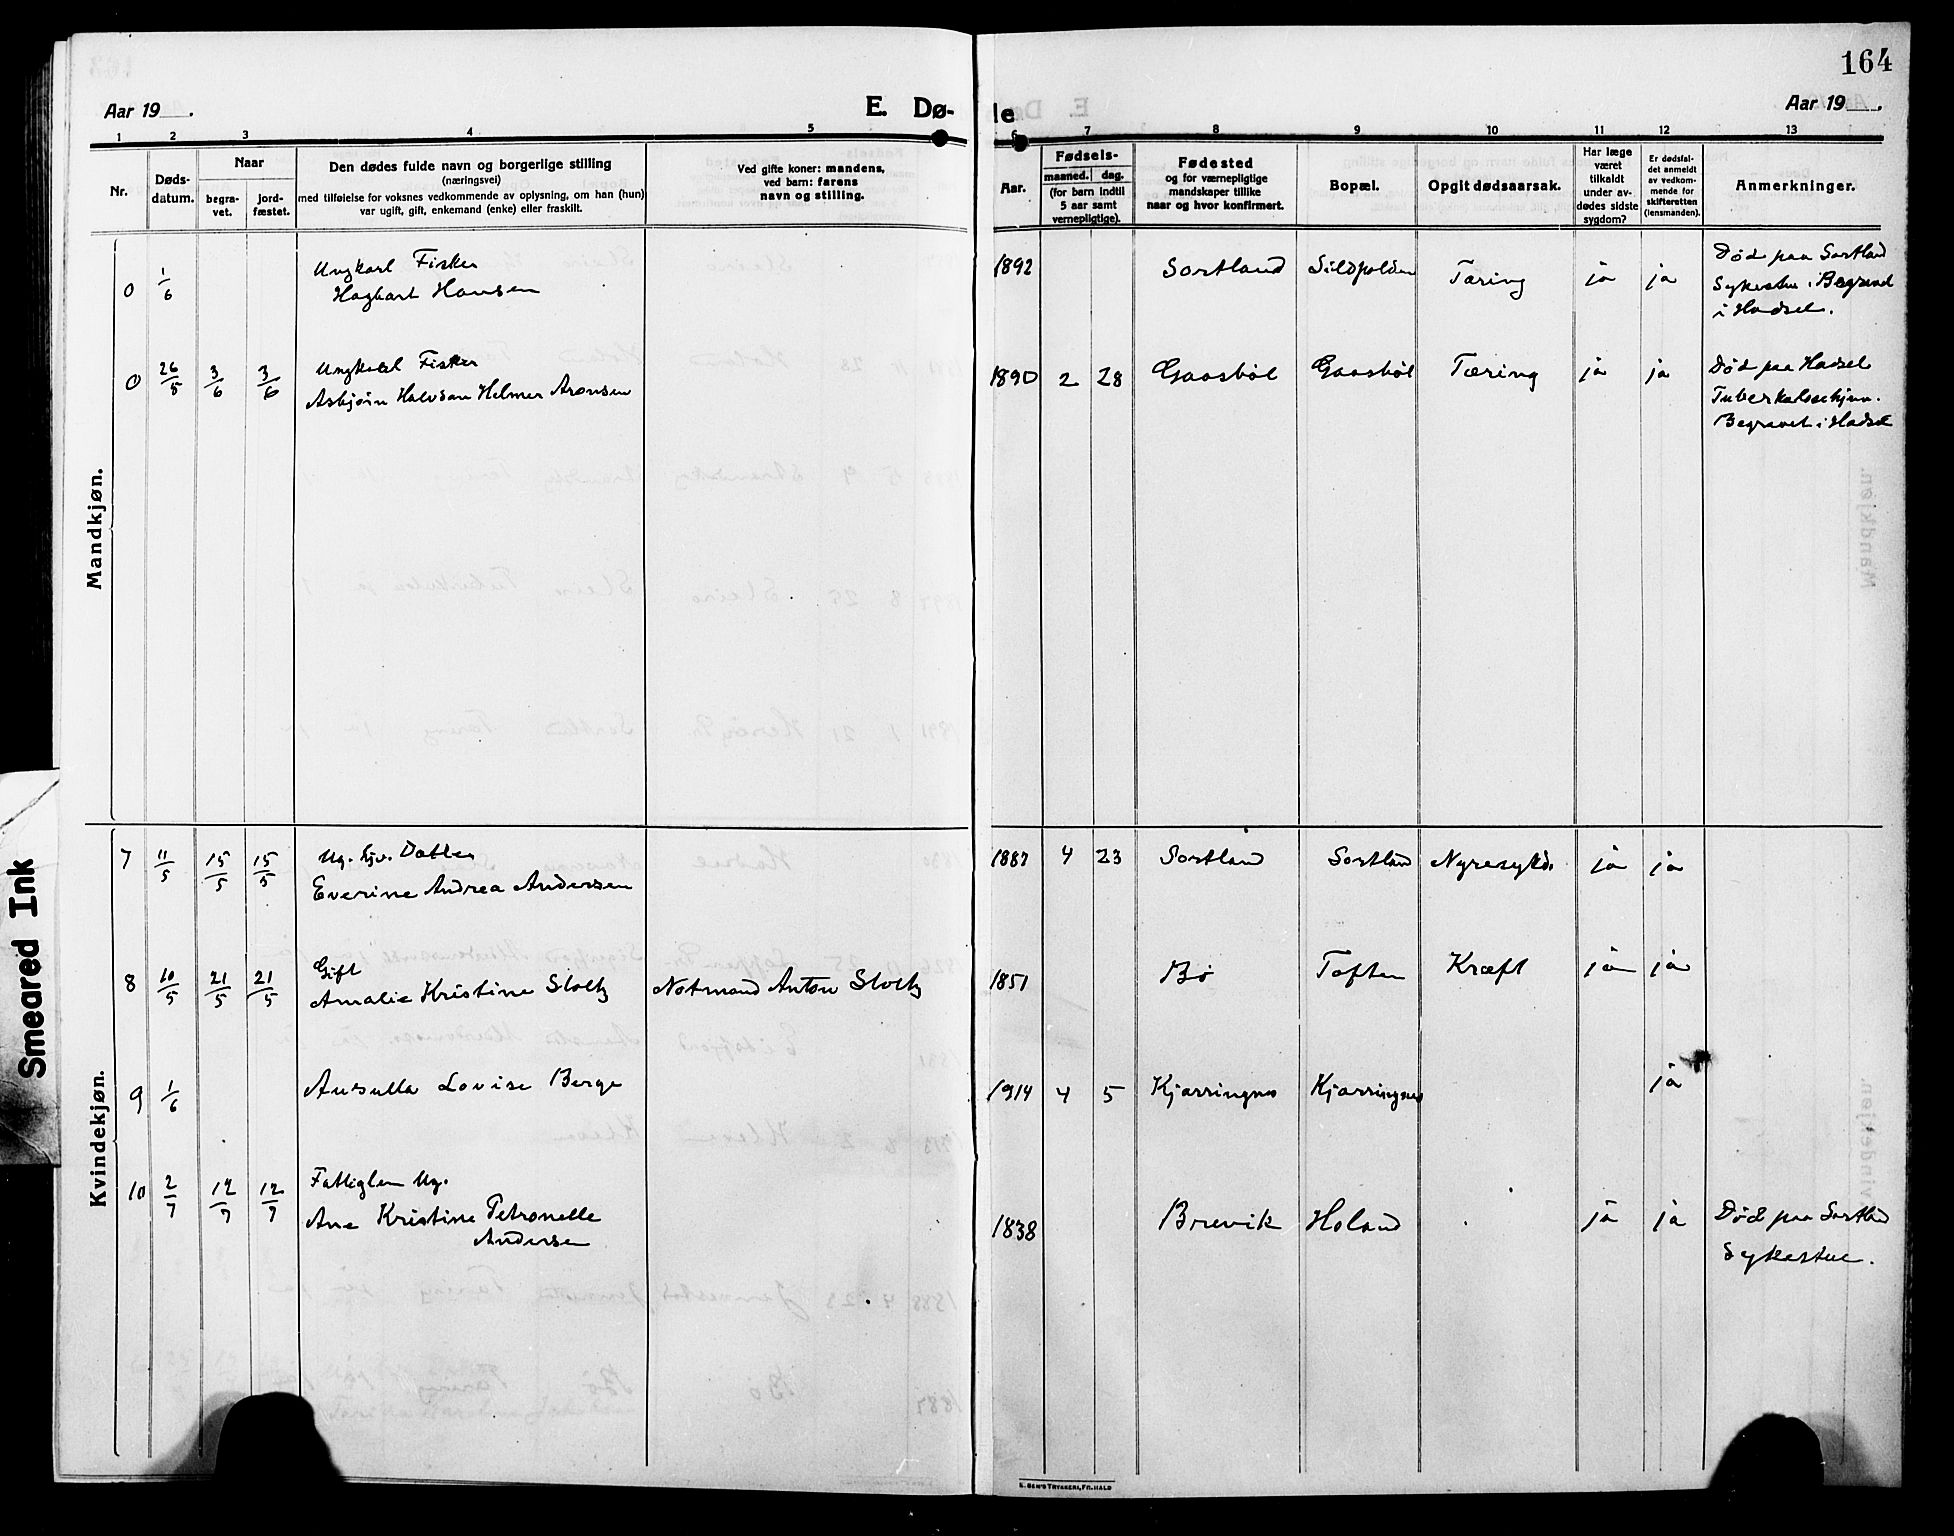 164
Aar 19 .
E. Dø-
de
Aar 19 .
1 2 3 4 5 6 7 8 9 10 11 12 13
Nr.
Døds-
datum.
Naar
begra-
vet.
jord-
fæstet.
Den dødes fulde navn og borgerlige stilling
(næringsvei)
med tilføielse for voksnes vedkommende av oplysning, om han (hun)
var ugift, gift, enkemand (enke) eller fraskilt.
Ved gifte koner: mandens,
ved barn: farens
navn og stilling.
Aar.
Fødsels-
maaned. dag.
(for barn indtil
5 aar samt
vernepligtige).
Fødested
og for værnepligtige
mandskaper tillike
naar og hvor konfirmert.
Bopæl.
Opgit dødsaarsak.
Har læge
været
tilkaldt
under av-
dødes sidste
sygdom?
Er dødsfal-
det anmeldt
av vedkom-
mende for
skifteretten
(lensmanden).
Anmerkninger.
Mandkjøn.
0 1/6 Ungkarl Fisker
Hagbart Hansen
1892 Sortland Sildpolden Tæring ja ja
Død paa Sortland
Sykestue. Begravet
i Hadsel.
0 26/5 3/6 3/6 Ungkarl Fisker
Asbjørn Halvsan Helmer Aronsen
1890 2 28 Gaasbøl Gaasbøl Tæring ja ja
Død paa Hadsel
Tuberkulosehjem.
Begravet i Hadsel
Kvindekjøn.
7 11/5 15/5 15/5 Ug. Gjv. Datter
Everine Andrea Andersen
1887 4 23 Sortland Sortland Nyresykd. ja ja
8 10/5 21/5 21/5 Gift
Amalie Kristine Stoltz Notmand Anton Stoltz
1851 Bø Toften Kræft ja ja
9 1/6 Ausulla Lovise Berge
1914 4 5 Kjærringnes Kjærringnes ja
10 2/7 12/7 12/7 Fattiglem Ug.
Ane Kristine Petronelle
Andersen
1838 Brevik Holand ja ja
Død paa Sortland
Sykestue.
Smeared Ink